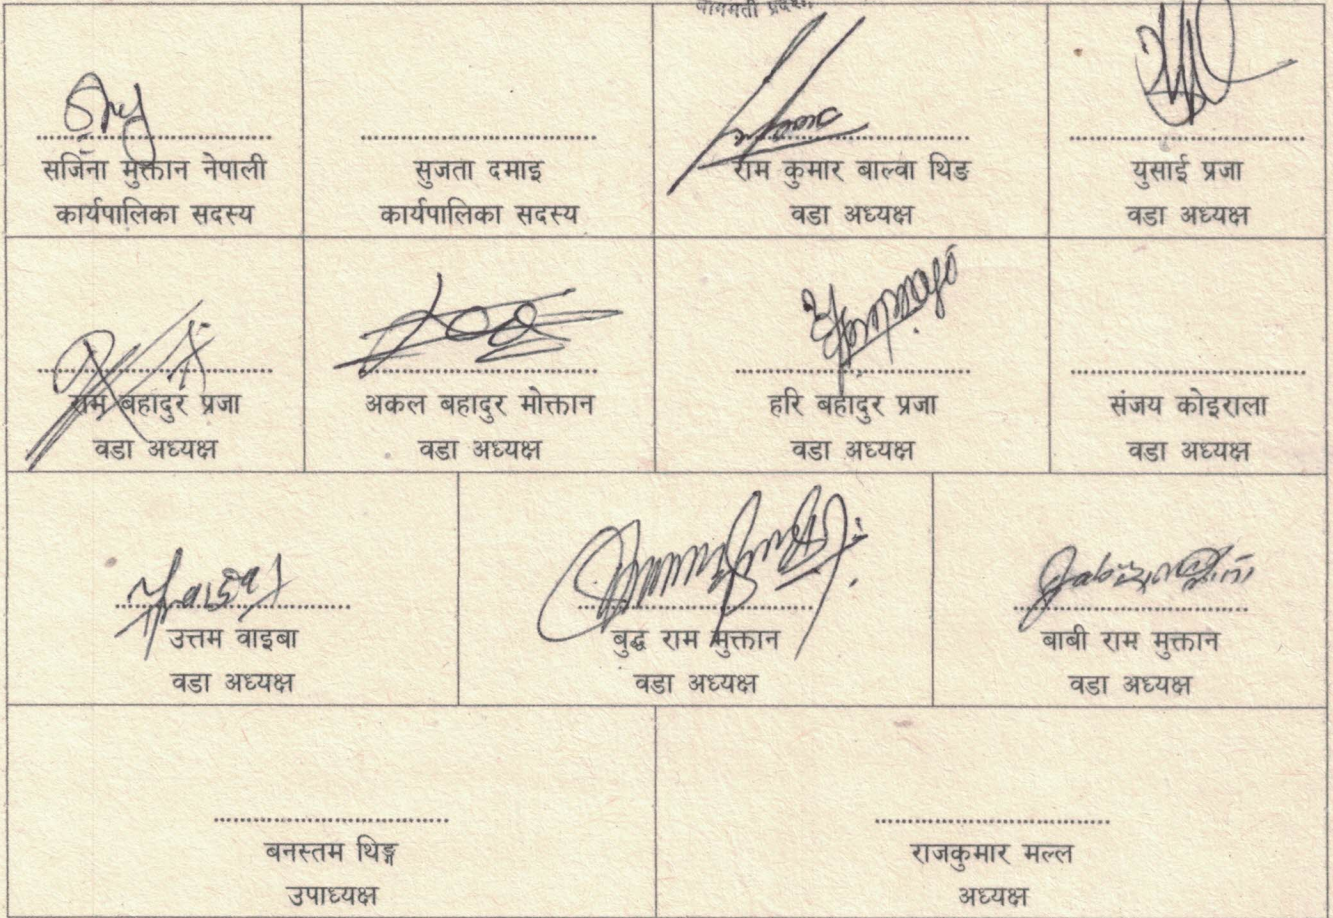 बागमती प्रदेश
सर्जिना मुक्तान नेपाली
कार्यपालिका सदस्य
सुजता दमाइ
कार्यपालिका सदस्य
राम कुमार बाल्वा थिङ
वडा अध्यक्ष
युसाई प्रजा
वडा अध्यक्ष
राम बहादुर प्रजा
वडा अध्यक्ष
अकल बहादुर मोक्तान
वडा अध्यक्ष
हरि बहादुर प्रजा
वडा अध्यक्ष
संजय कोइराला
वडा अध्यक्ष
उत्तम वाइबा
वडा अध्यक्ष
बुद्ध राम मुक्तान
वडा अध्यक्ष
बाबी राम मुक्तान
वडा अध्यक्ष
बनस्तम थिङ्ग
उपाध्यक्ष
राजकुमार मल्ल
अध्यक्ष